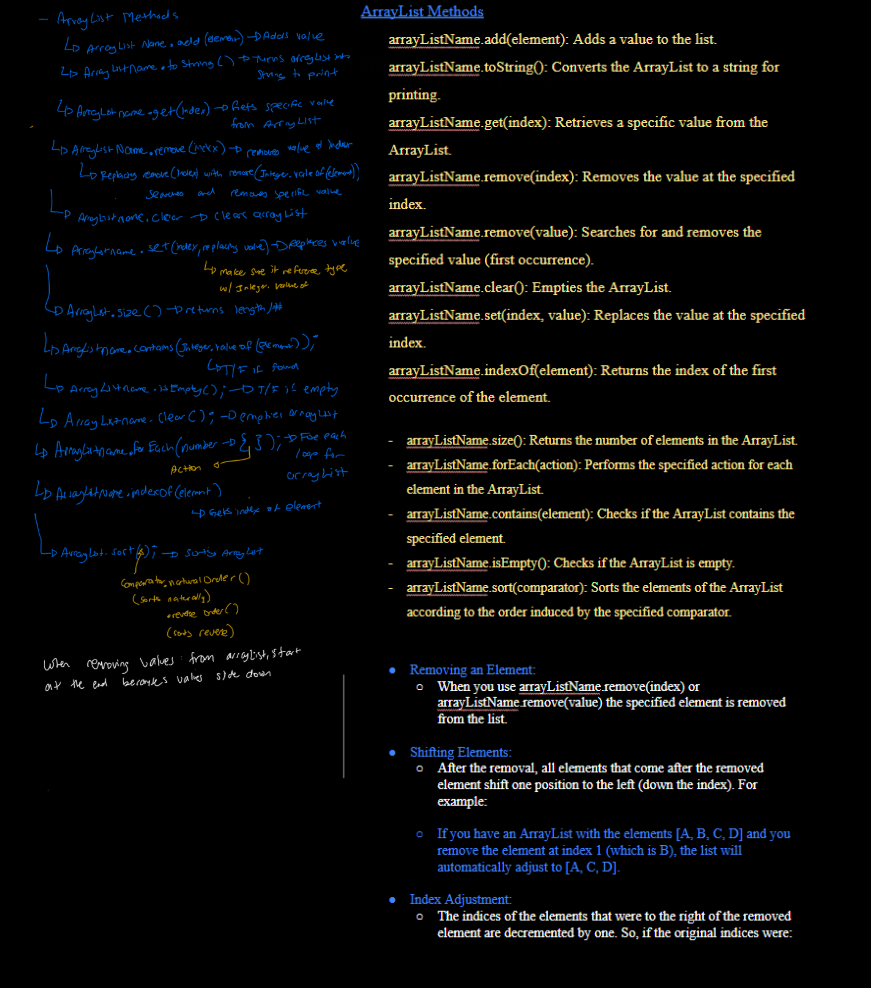 - ArrayList Methods
↳ ArrayList Name.add(element) → Adds value
↳ ArrayListname.toString() → turns arraylist into
String to print
↳ ArrayListname.get(index) → Gets specific value
from ArrayList
↳ ArrayListName.remove(index) → removes value at index
↳ Replacing remove(index) with remove(Integer.valueof(element)),
searches and removes specific value
↳ Arraylistname.clear → clears arrayList
↳ Arraylistname.set(index, replacing value) → replaces value
↳ make sure it reference type
w/ Integer.valueof
↳ ArrayList.size() → returns length/#
↳ ArrayListname.contains(Integer.valueof(element));
↳ T/F if found
↳ ArrayListname.isEmpty(); → T/F if empty
↳ ArrayListname.clear(); → empties arraylist
↳ ArrayListname.forEach(number → { }); → For each
loop for
arraylist
Action
↳ ArrayListname.indexOf(element)
↳ Gets index of element
↳ ArrayList.sort(); → sorts ArrayList
Comparator.naturalOrder()
(sorts naturally)
.reverseOrder()
(sorts reverse)
When removing values from arraylist, start
at the end because values slide down
ArrayList Methods
arrayListName.add(element): Adds a value to the list.
arrayListName.toString(): Converts the ArrayList to a string for
printing.
arrayListName.get(index): Retrieves a specific value from the
ArrayList.
arrayListName.remove(index): Removes the value at the specified
index.
arrayListName.remove(value): Searches for and removes the
specified value (first occurrence).
arrayListName.clear(): Empties the ArrayList.
arrayListName.set(index, value): Replaces the value at the specified
index.
arrayListName.indexOf(element): Returns the index of the first
occurrence of the element.
- arrayListName.size(): Returns the number of elements in the ArrayList.
- arrayListName.forEach(action): Performs the specified action for each
element in the ArrayList.
- arrayListName.contains(element): Checks if the ArrayList contains the
specified element.
- arrayListName.isEmpty(): Checks if the ArrayList is empty.
- arrayListName.sort(comparator): Sorts the elements of the ArrayList
according to the order induced by the specified comparator.
● Removing an Element:
○ When you use arrayListName.remove(index) or
arrayListName.remove(value) the specified element is removed
from the list.
● Shifting Elements:
○ After the removal, all elements that come after the removed
element shift one position to the left (down the index). For
example:
○ If you have an ArrayList with the elements [A, B, C, D] and you
remove the element at index 1 (which is B), the list will
automatically adjust to [A, C, D].
● Index Adjustment:
○ The indices of the elements that were to the right of the removed
element are decremented by one. So, if the original indices were: